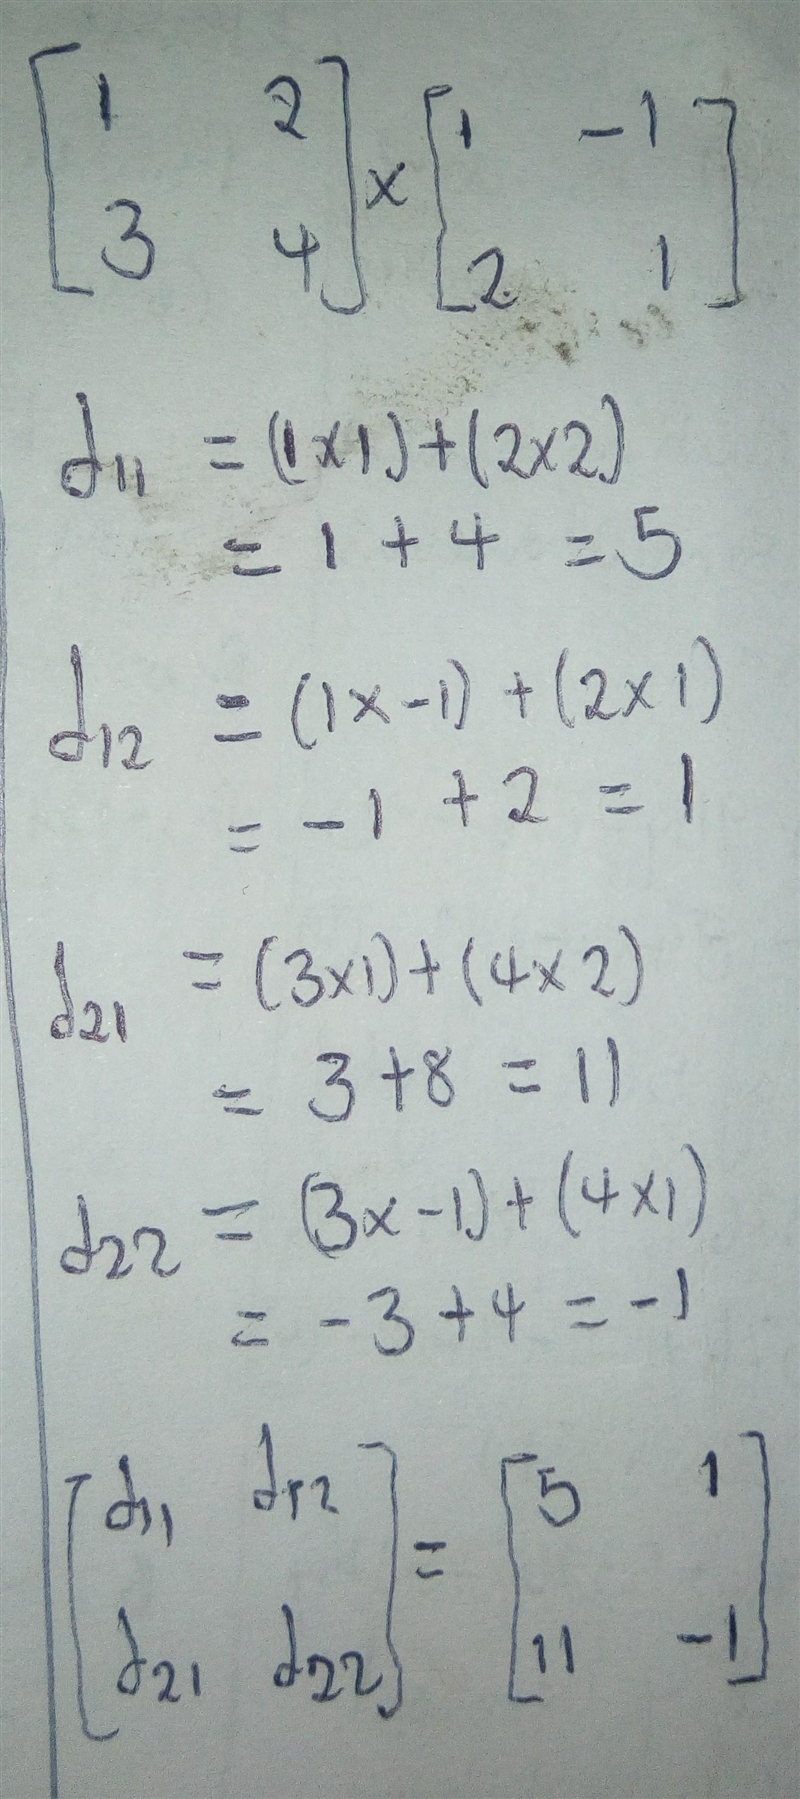 [1 2] × [1 -1]
[3 4] [2 1]
d11 = (1×1)+(2×2)
= 1 + 4 = 5
d12 = (1×-1) + (2×1)
= -1 + 2 = 1
d21 = (3×1)+(4×2)
= 3+8 = 11
d22 = (3×-1)+(4×1)
= -3+4 = -1
[d11 d12] = [5 1]
[d21 d22] [11 -1]